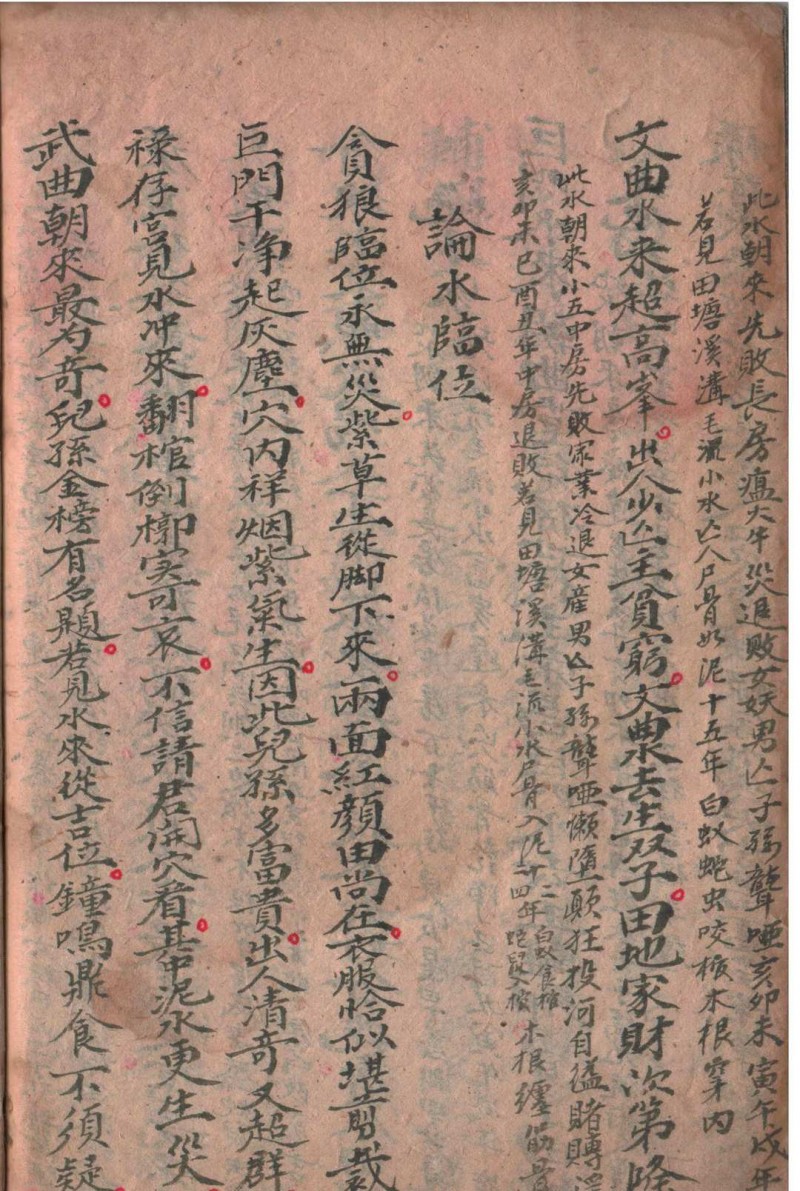 此水朝來先敗長房瘟火牛災退敗女妖男亡子孫聾啞亥卯未寅午戌年
若見田塘溪溝毛流小水亡人尸骨如泥十五年白蚁蛇虫咬棺木根穿内
文曲水来超高峯出人少亡主貧窮文曲水去生双子田地家財次第隆
此水朝來小五中房先敗家業冷退女產男亡子孫聾啞懶墮顛狂投河自缢賭賻
亥卯未巳酉丑年中房退敗若見田塘溪溝毛流小水尸骨入泥十二四年白蚁食棺蛇鼠入棺木根纏筋骨
論水臨位
貪狼臨位永無災紫草生從脚下來兩面紅顏由尚在衣服恰似堪剪裁
巨門干净起灰塵穴内祥烟紫氣生因此兒孫多富貴出人清奇又超群
祿存宫見水冲來翻棺倒槨寔可哀不信請君開穴看其中泥水更生災
武曲朝來最为奇兒孫金榜有名題若見水來從吉位鐘鳴鼎食不須疑